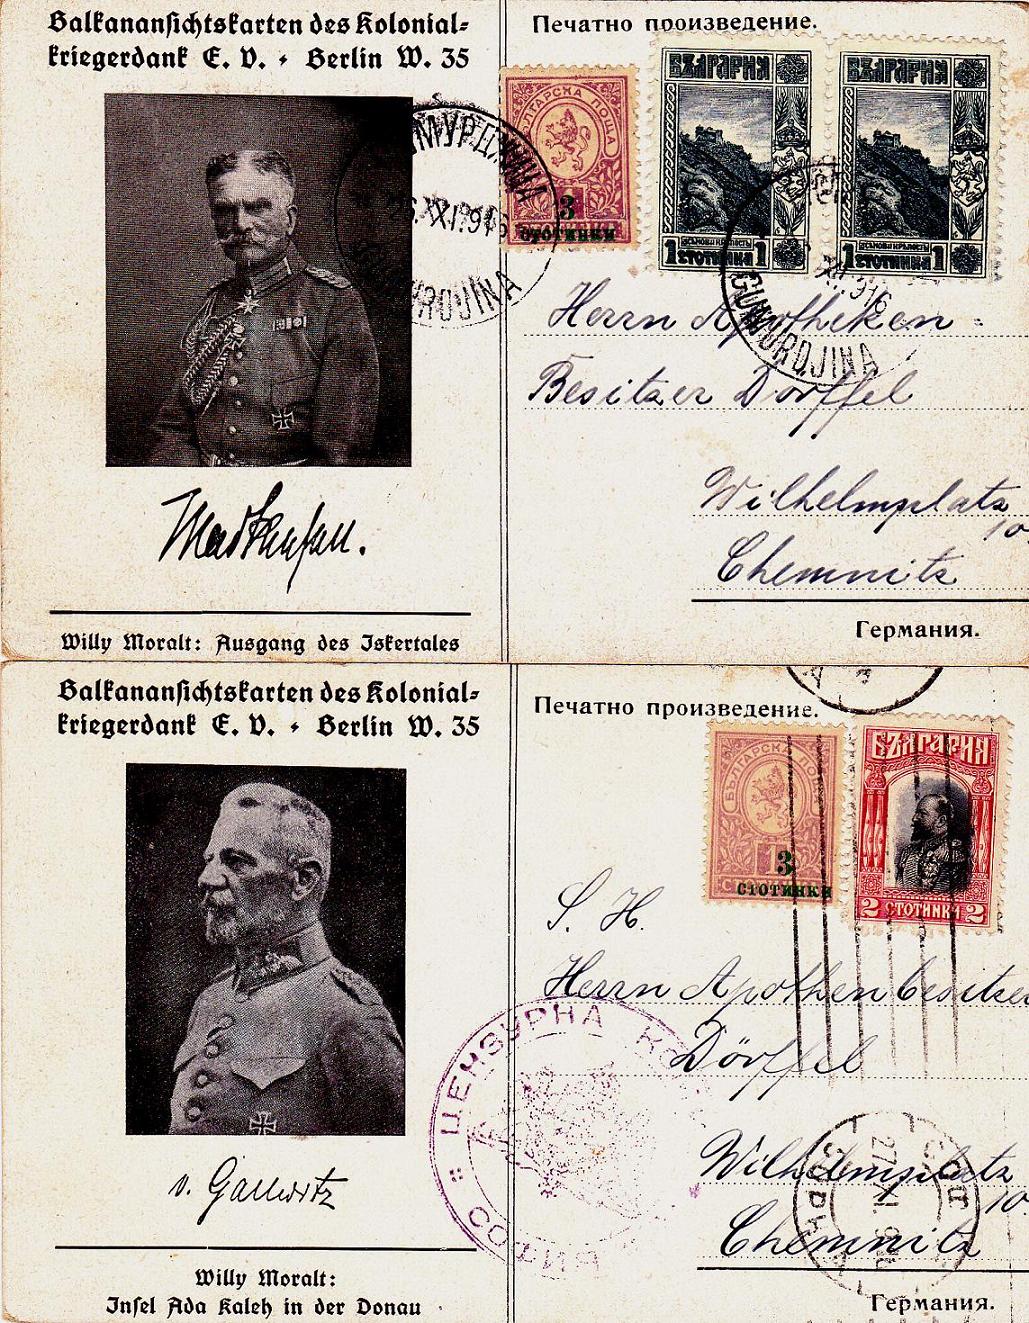 Balkanansichtskarten des Kolonial-
kriegerdank E. V. • Berlin W. 35
Willy Moralt: Ausgang des Iskertales
Печатно произведение.
БЪЛГАРСКА ПОЩА
3
СТОТИНКИ
БЪЛГАРИЯ
1 СТОТИНКА 1
БЪЛГАРИЯ
1 СТОТИНКА 1
XI.916
GUMURDJINA
Herrn Apotheken
Besitzer Dörffel
Wilhelmplatz
10.
Chemnitz
Германия.
Balkanansichtskarten des Kolonial-
kriegerdank E. V. • Berlin W. 35
v. Gallwitz
Willy Moralt:
Insel Ada Kaleh in der Donau
Печатно произведение.
БЪЛГАРСКА ПОЩА
3
СТОТИНКИ
БЪЛГАРИЯ
2 СТОТИНКИ 2
S. H.
Herrn Apothenbesitzer
Dörffel
ЦЕНЗУРНА
СОФИЯ
Wilhelmplatz
10.
Chemnitz
Германия.